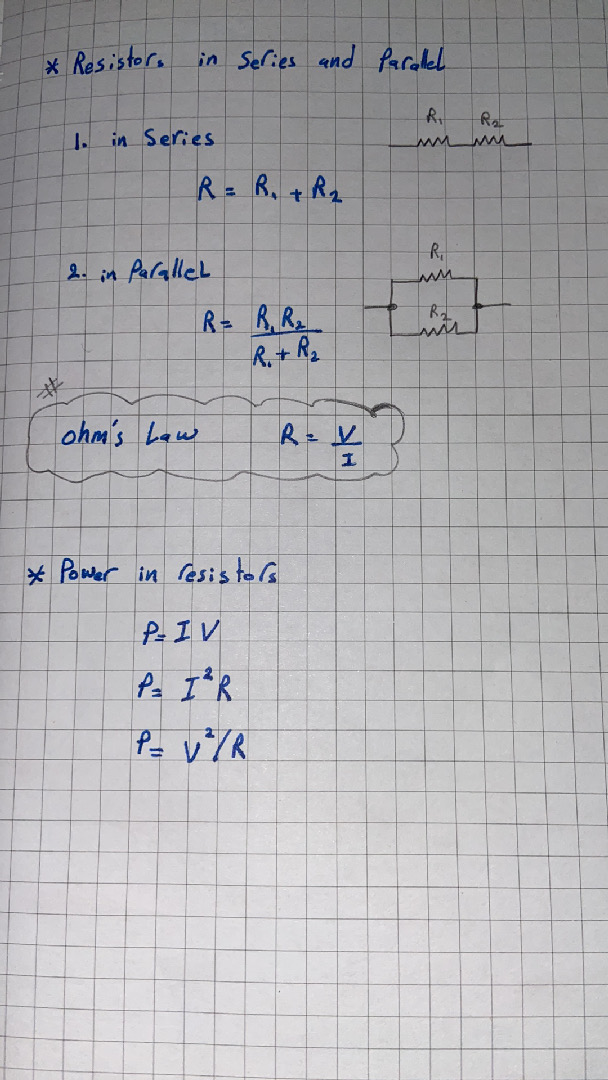 * Resistors in Series and Parallel
R₁ R₂
1. in Series
R = R₁ + R₂
R₁
2. in Parallel
R₂
R = R₁ R₂ / R₁ + R₂
#
ohm's Law R = V / I
* Power in resistors
P = I V
P = I² R
P = V²/R